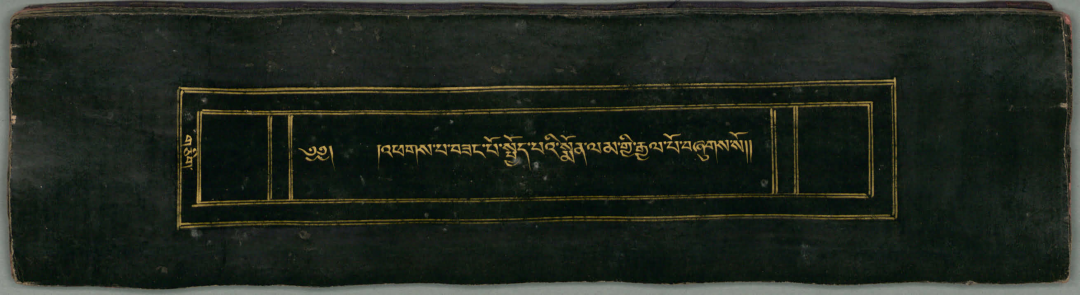 གཅིག
༄༅། །འཕགས་པ་བཟང་པོ་སྤྱོད་པའི་སྨོན་ལམ་གྱི་རྒྱལ་པོ་བཞུགས་སོ།།